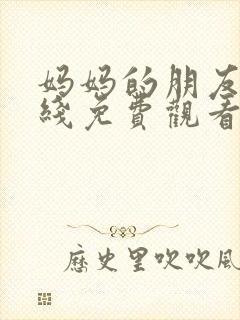 妈妈的朋友
綫免費觀看
歷史里吹吹風